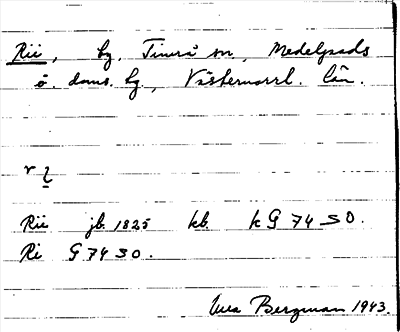 Rii, by. Timrå sn., Medelpads
ö. doms. hg, Västernorrl. län.
Rii jb. 1825 kb. k G 74 SO.
Ri G 74 SO.
Bergman 1943.